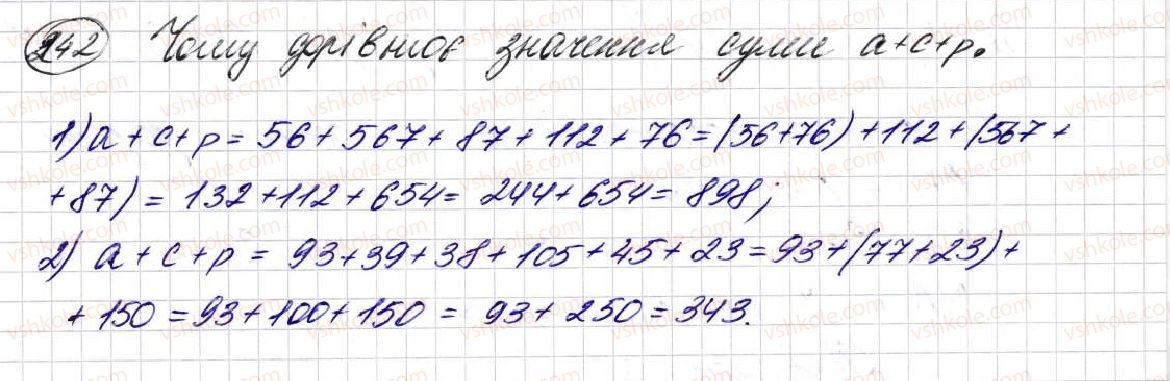 242 Чому дорівнює значення суми a+c+p.
1) a + c + p = 56 + 567 + 87 + 112 + 76 = (56+76) + 112 + (567 +
+87) = 132 + 112 + 654 = 244 + 654 = 898;
2) a + c + p = 93 + 39 + 38 + 105 + 45 + 23 = 93 + (77 + 23) +
+ 150 = 93 + 100 + 150 = 93 + 250 = 343.